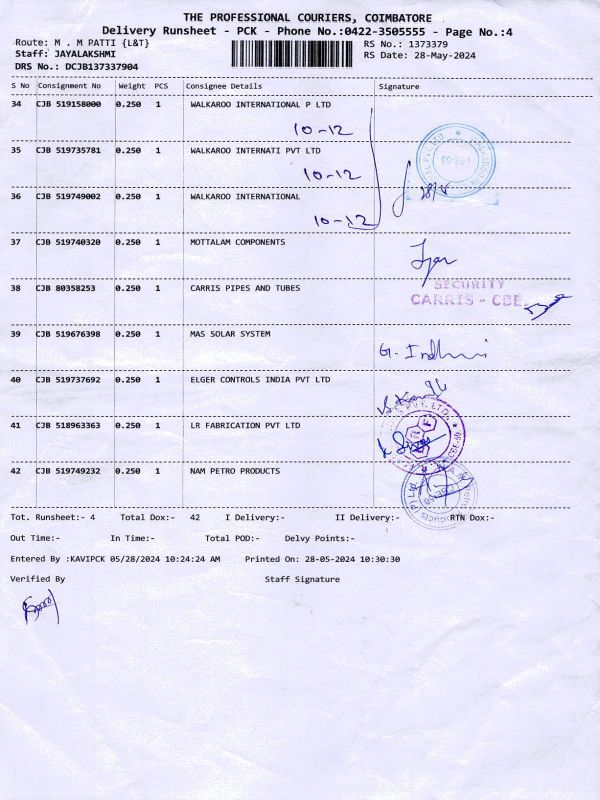 THE PROFESSIONAL COURIERS, COIMBATORE
Delivery Runsheet - PCK - Phone No.:0422-3505555 - Page No.:4
Route: M . M PATTI {L&T} RS No.: 1373379
Staff: JAYALAKSHMI RS Date: 28-May-2024
DRS No.: DCJB137337904
S No Consignment No Weight PCS Consignee Details Signature
34 CJB 519158000 0.250 1 WALKAROO INTERNATIONAL P LTD
10-12
35 CJB 519735781 0.250 1 WALKAROO INTERNATI PVT LTD
10-12
36 CJB 519749002 0.250 1 WALKAROO INTERNATIONAL
10-12
37 CJB 519740320 0.250 1 MOTTALAM COMPONENTS
38 CJB 80358253 0.250 1 CARRIS PIPES AND TUBES
SECURITY
CARRIS - CBE.
39 CJB 519676398 0.250 1 MAS SOLAR SYSTEM
40 CJB 519737692 0.250 1 ELGER CONTROLS INDIA PVT LTD
41 CJB 518963363 0.250 1 LR FABRICATION PVT LTD
42 CJB 519749232 0.250 1 NAM PETRO PRODUCTS
Tot. Runsheet:- 4 Total Dox:- 42 I Delivery:- II Delivery:- RTN Dox:-
Out Time:- In Time:- Total POD:- Delvy Points:-
Entered By :KAVIPCK 05/28/2024 10:24:24 AM Printed On: 28-05-2024 10:30:30
Verified By Staff Signature